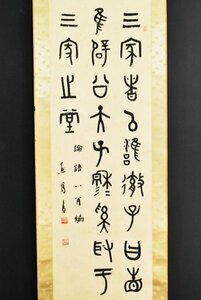 三家者以雍徹子曰相
維辟公天子穆穆奚取于
三家之堂
論語八佾編